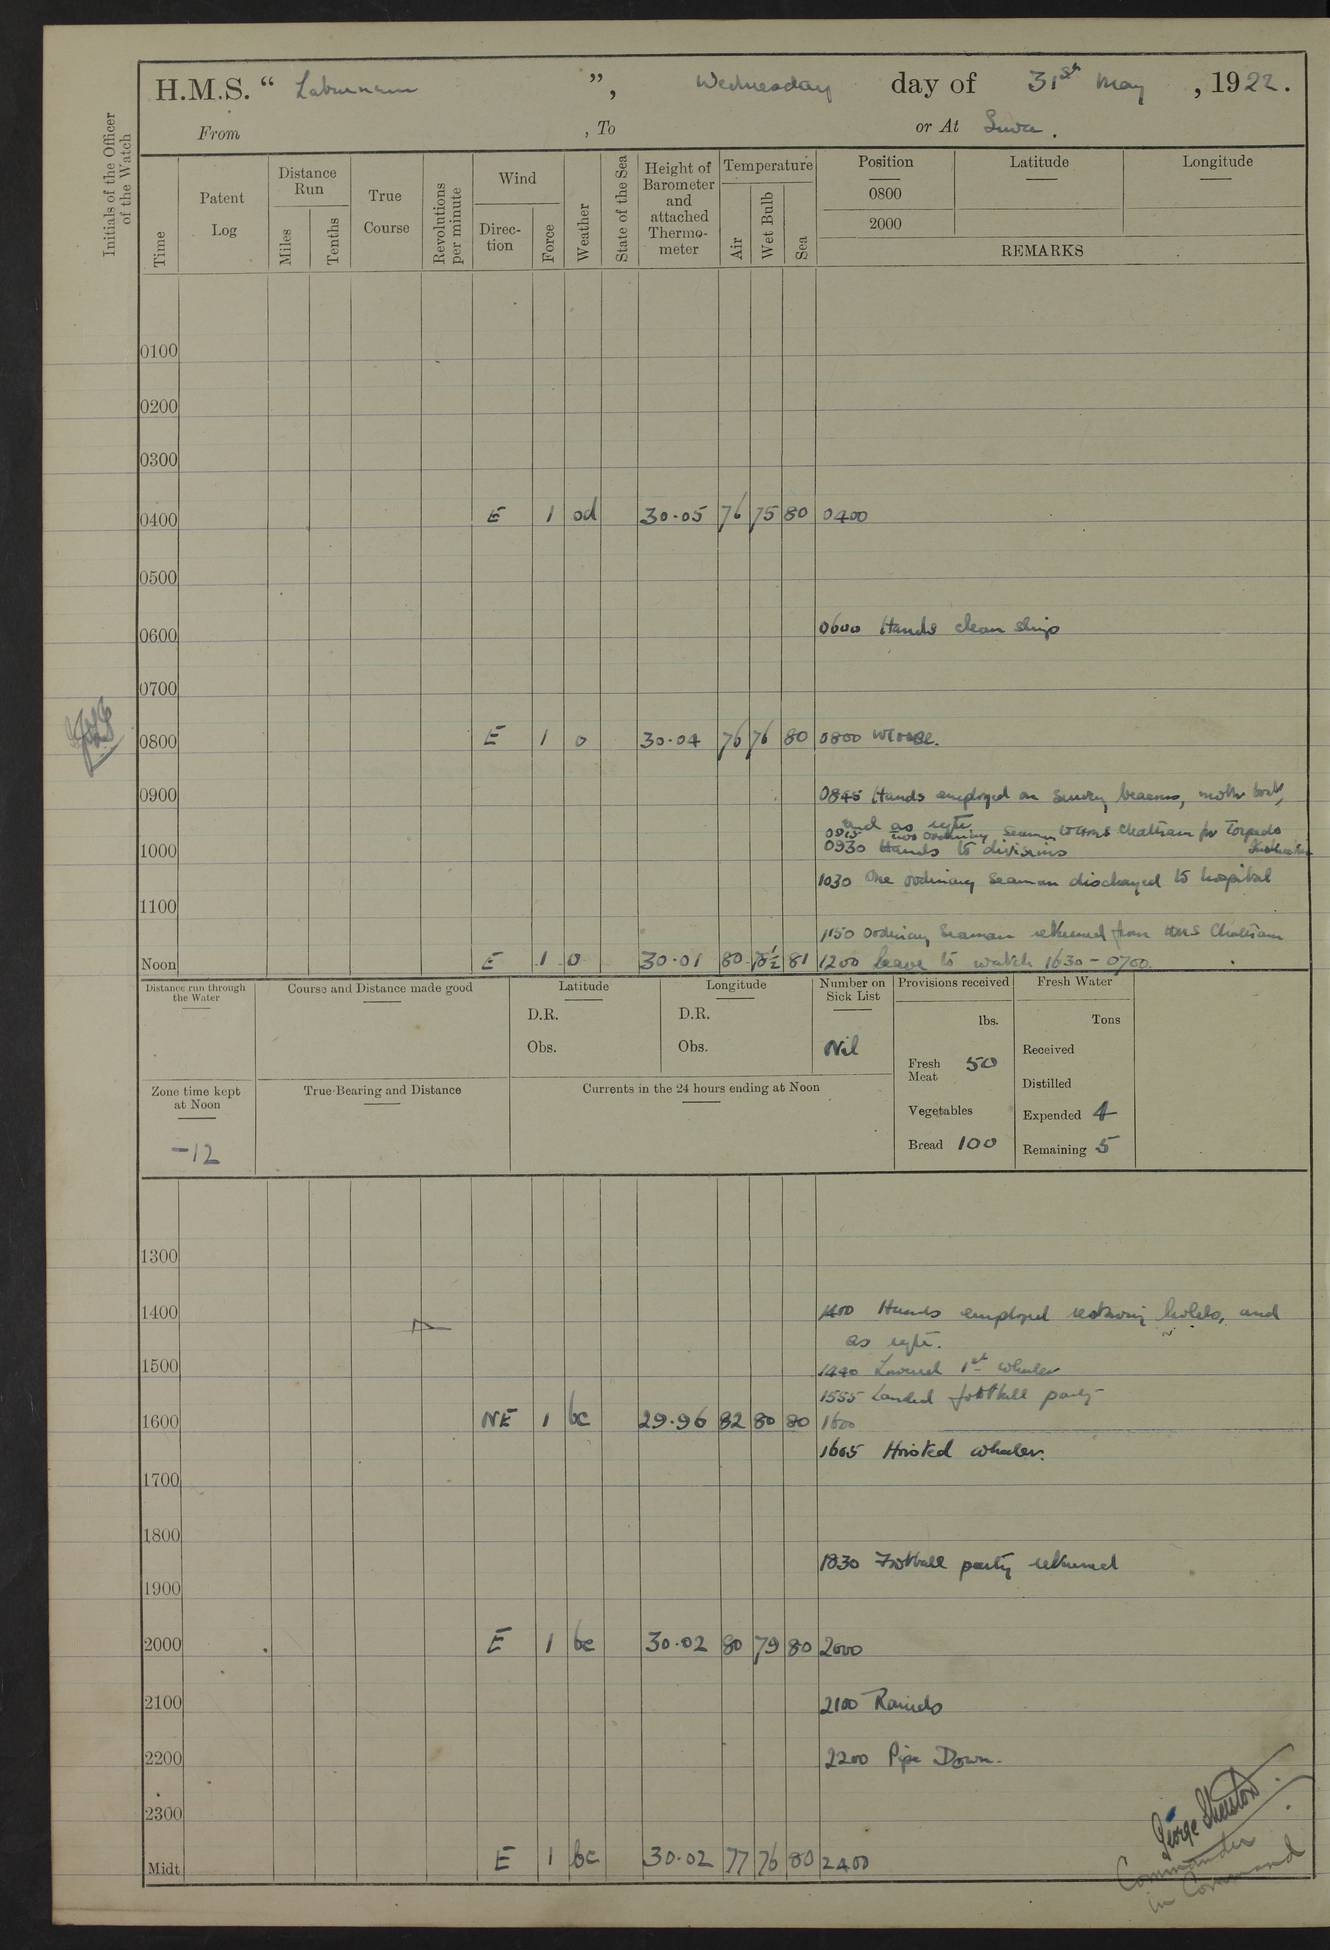 H.M.S. “ Laburnum ”, Wednesday day of 31st May , 1922.
From , To or At Suva .
Initials of the Officer of the Watch
Time
Patent Log
Distance Run
Miles
Tenths
True Course
Revolutions per minute
Wind
Direction
Force
Weather
State of the Sea
Height of Barometer and attached Thermometer
Temperature
Air
Wet Bulb
Sea
Position Latitude Longitude
0800
2000
REMARKS
0100
0200
0300
0400 E 1 od 30.05 76 75 80 0400
0500
0600 0600 Hands clean ship
0700
0800 E 1 o 30.04 76 76 80 0800
0900 0845 Hands employed on survey beacons, motor boat,
and as reqte
0915 two ordinary seamen to HMS Chatham for Torpedo
1000 0930 Hands to divisions
1030 One ordinary seaman discharged to hospital
1100
1150 Ordinary Seaman returned from HMS Chatham
Noon E 1 o 30.01 80 78½ 81 1200 Leave to watch 1630 - 0700.
Distance run through the Water
Course and Distance made good
Latitude
D.R.
Obs.
Longitude
D.R.
Obs.
Number on Sick List
Nil
Provisions received
lbs.
Fresh Meat 50
Vegetables
Bread 100
Fresh Water
Tons
Received
Distilled
Expended 4
Remaining 5
Zone time kept at Noon
-12
True Bearing and Distance
Currents in the 24 hours ending at Noon
1300
1400 1400 Hands employed restowing holds, and
as reqte.
1500 1440 Lowered 1st whaler
1555 Landed football party
1600 NE 1 bc 29.96 82 80 80 1600
1605 Hoisted whaler.
1700
1800
1830 Football party returned
1900
2000 E 1 bc 30.02 80 79 80 2000
2100 2100 Rounds
2200 2200 Pipe Down.
2300
Midt E 1 bc 30.02 77 76 80 2400
George Shuston
Commander
in Command